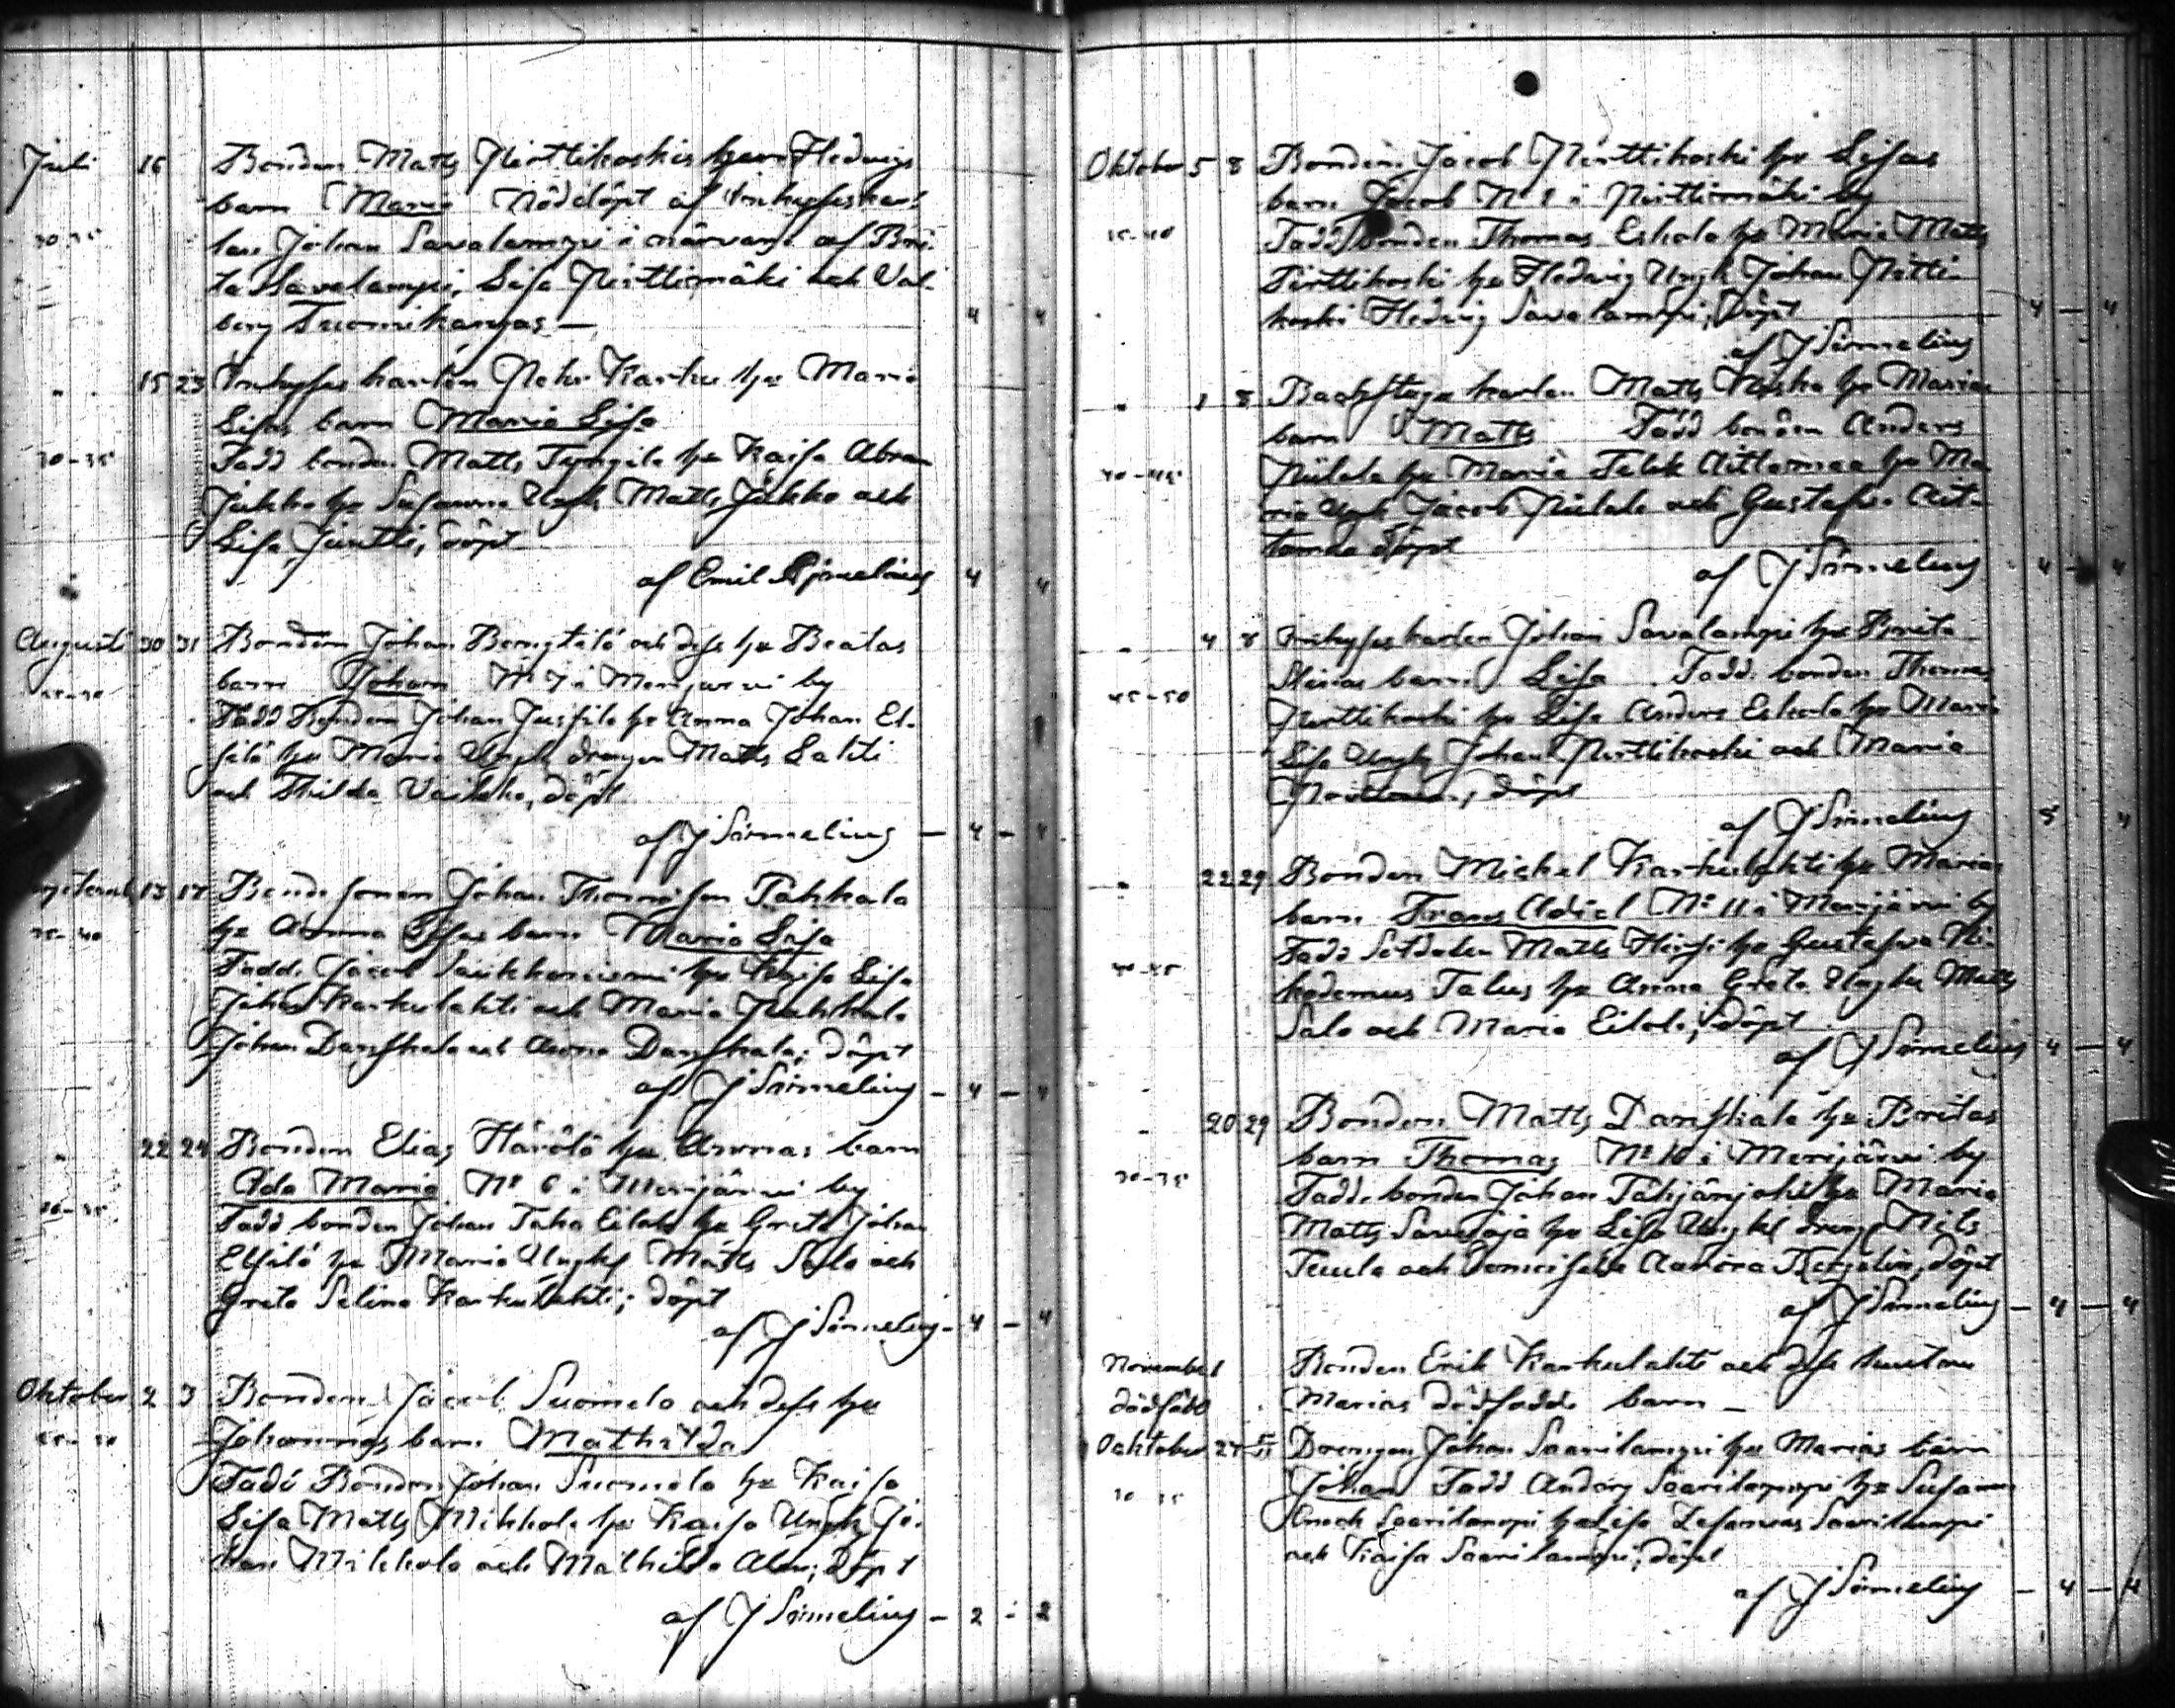 Juli 16 Bonden Matts Pirttikoskis hu Hedvigs
barn Maria Nöddöpt af Inhyses kar-
30-35 len Johan Savalampi i närvaro af Bri-
ta Savalampi, Lisa Pirttimäki och Val-
borg Suomikangas — 4 4
" 15 23 Inhyses karlen Petter Karhu hu Maria
Lisas barn Maria Lisa
30-35 Fadd bonden Matts Tyngilä hu Kaisa Abram
Jukko hu Susanna Ungk Matts Jukko och
Lisa Juntti, döpt
af Emil 4 4
Augusti 30 31 Bonden Johan Bengtilä och dess hu Beatas
barn Johan N:o 7 i Merijärvi by
Fadd Bonden Johan Jussila hu Anna Johan El-
filä hu Maria Ungk drängen Matts Lahti
och Thilda döpt
af J Sirnelius — 4 — 4
13 17 Bonde sonen Johan Thomasson Pahkala
35-40 hu Anna Lisas barn Maria Lisa
Fadd. Jacob Saukkoniemi hu Kaisa Lisa
Johan Karhulahti och Maria Pahkala
Johan Danskala och Anna Danskala; döpt
af J Sirnelius — 4 — 4
" 22 24 Bonden Elias Härölä hu Annas barn
Ada Maria N:o 6 i Merijärvi by
Fadd bonden Johan Taka Eilola hu Greta Johan
Elfilä hu Maria Ungk Matts Salo och
Greta Selina Karhulahti; döpt
af J Sirnelius — 4 — 4
Oktober 2 3 Bonden Jacob Suomela och dess hu
Johannas barn Mathilda
Fadd Bonden Johan Suomela hu Kaisa
Lisa Matts Mikkola hu Kaisa Ungk Jo-
han Mikkola och Mathilda döpt
af J Sirnelius — 2 — 2
Oktober 5 8 Bonden Jacob Pirttikoski hu Lisas
barn Jacob N:o 1 i Pirttimäki by
35-40 Fadd bonden Thomas Eskola hu Maria Matts
Pirttikoski hu Hedvig Ungk Johan Pirtti-
koski Hedvig Savalampi; döpt 4 — 4
af J Sirnelius
" 1 8 Backstuge karlen Matts hu Marias
barn Matts Fadd bonden Anders
40-45 Piilola hu Maria Aittamaa hu Ma-
ria Ungk Jacob Piilola och Gustafva Ait-
tamaa döpt
af J Sirnelius 4 — 4
" 4 8 Inhyses karlen Johan Savalampi hu Brita
Marias barn Lisa Fadd. bonden Thomas
45-50 Pirttikoski hu Lisa Anders Eskola hu Maria
Lisa Ungk Johan Pirttikoski och Maria
döpt
af J Sirnelius 5 4
" 22 29 Bonden Mickel Karhulahti hu Marias
barn Frans Adiel N:o 11 i Merijärvi by
Fadd Soldaten Matts hu Gustafva Ni-
40-45 kodemus Talus hu Anna Greta Ungk Matts
Salo och Maria Eilola; döpt
af J Sirnelius 4 — 4
" 20 29 Bonden Matts Danskala hu Britas
barn Thomas N:o 10 i Merijärvi by
30-35 Fadd. bonden Johan Tähjänjoki hu Maria
Matts Saveloja hu Lisa Ungk dräng Nils
Tuula och Demoiselle Aurora döpt
af J Sirnelius — 4 — 4
November Bonden Erik Karhulahti och dess hustru
dödfödd Marias dödfödde barn —
Ocktober 27 Drengen Johan Saarilampi hu Marias barn
Johan Fadd Anders Saarilampi hu Susanna
Enock Saarilampi hu Lisa Zefanias Saarilampi
och Kaisa Saarilampi; döpt
af J Sirnelius — 4 — 4